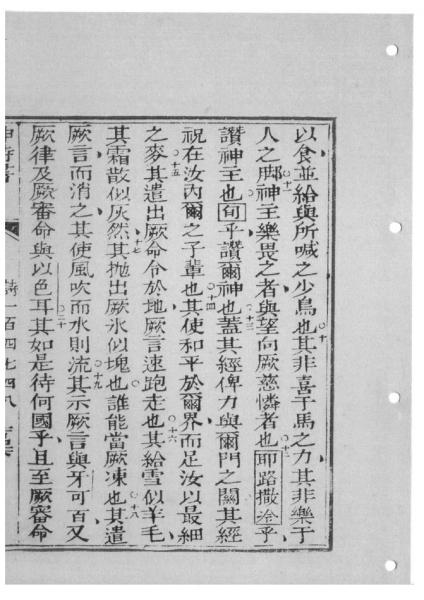 以食並給與所喊之少鳥也。十其非喜于馬之力、其非樂于
人之脚。十一神主樂畏之者、與望向厥慈憐者也。十二耶路撒冷乎、
讚神主也。旬乎、讚爾神也。十三蓋其經俾力與爾門之關、其經
祝在汝內爾之子輩也。十四其使和平於爾界、而足汝以最細
之麥。十五其遣出厥命令於地、厥言速跑走也。十六其給雪似羊毛、
其霜散似灰然。十七其抛出厥氷似塊也。誰能當厥凍也。十八其遣
厥言而消之、其使風吹而水則流。十九其示厥言與牙可百、又
厥律及厥審命與以色耳。二十其如是待何國乎、且至厥審命
詩一百四七四八